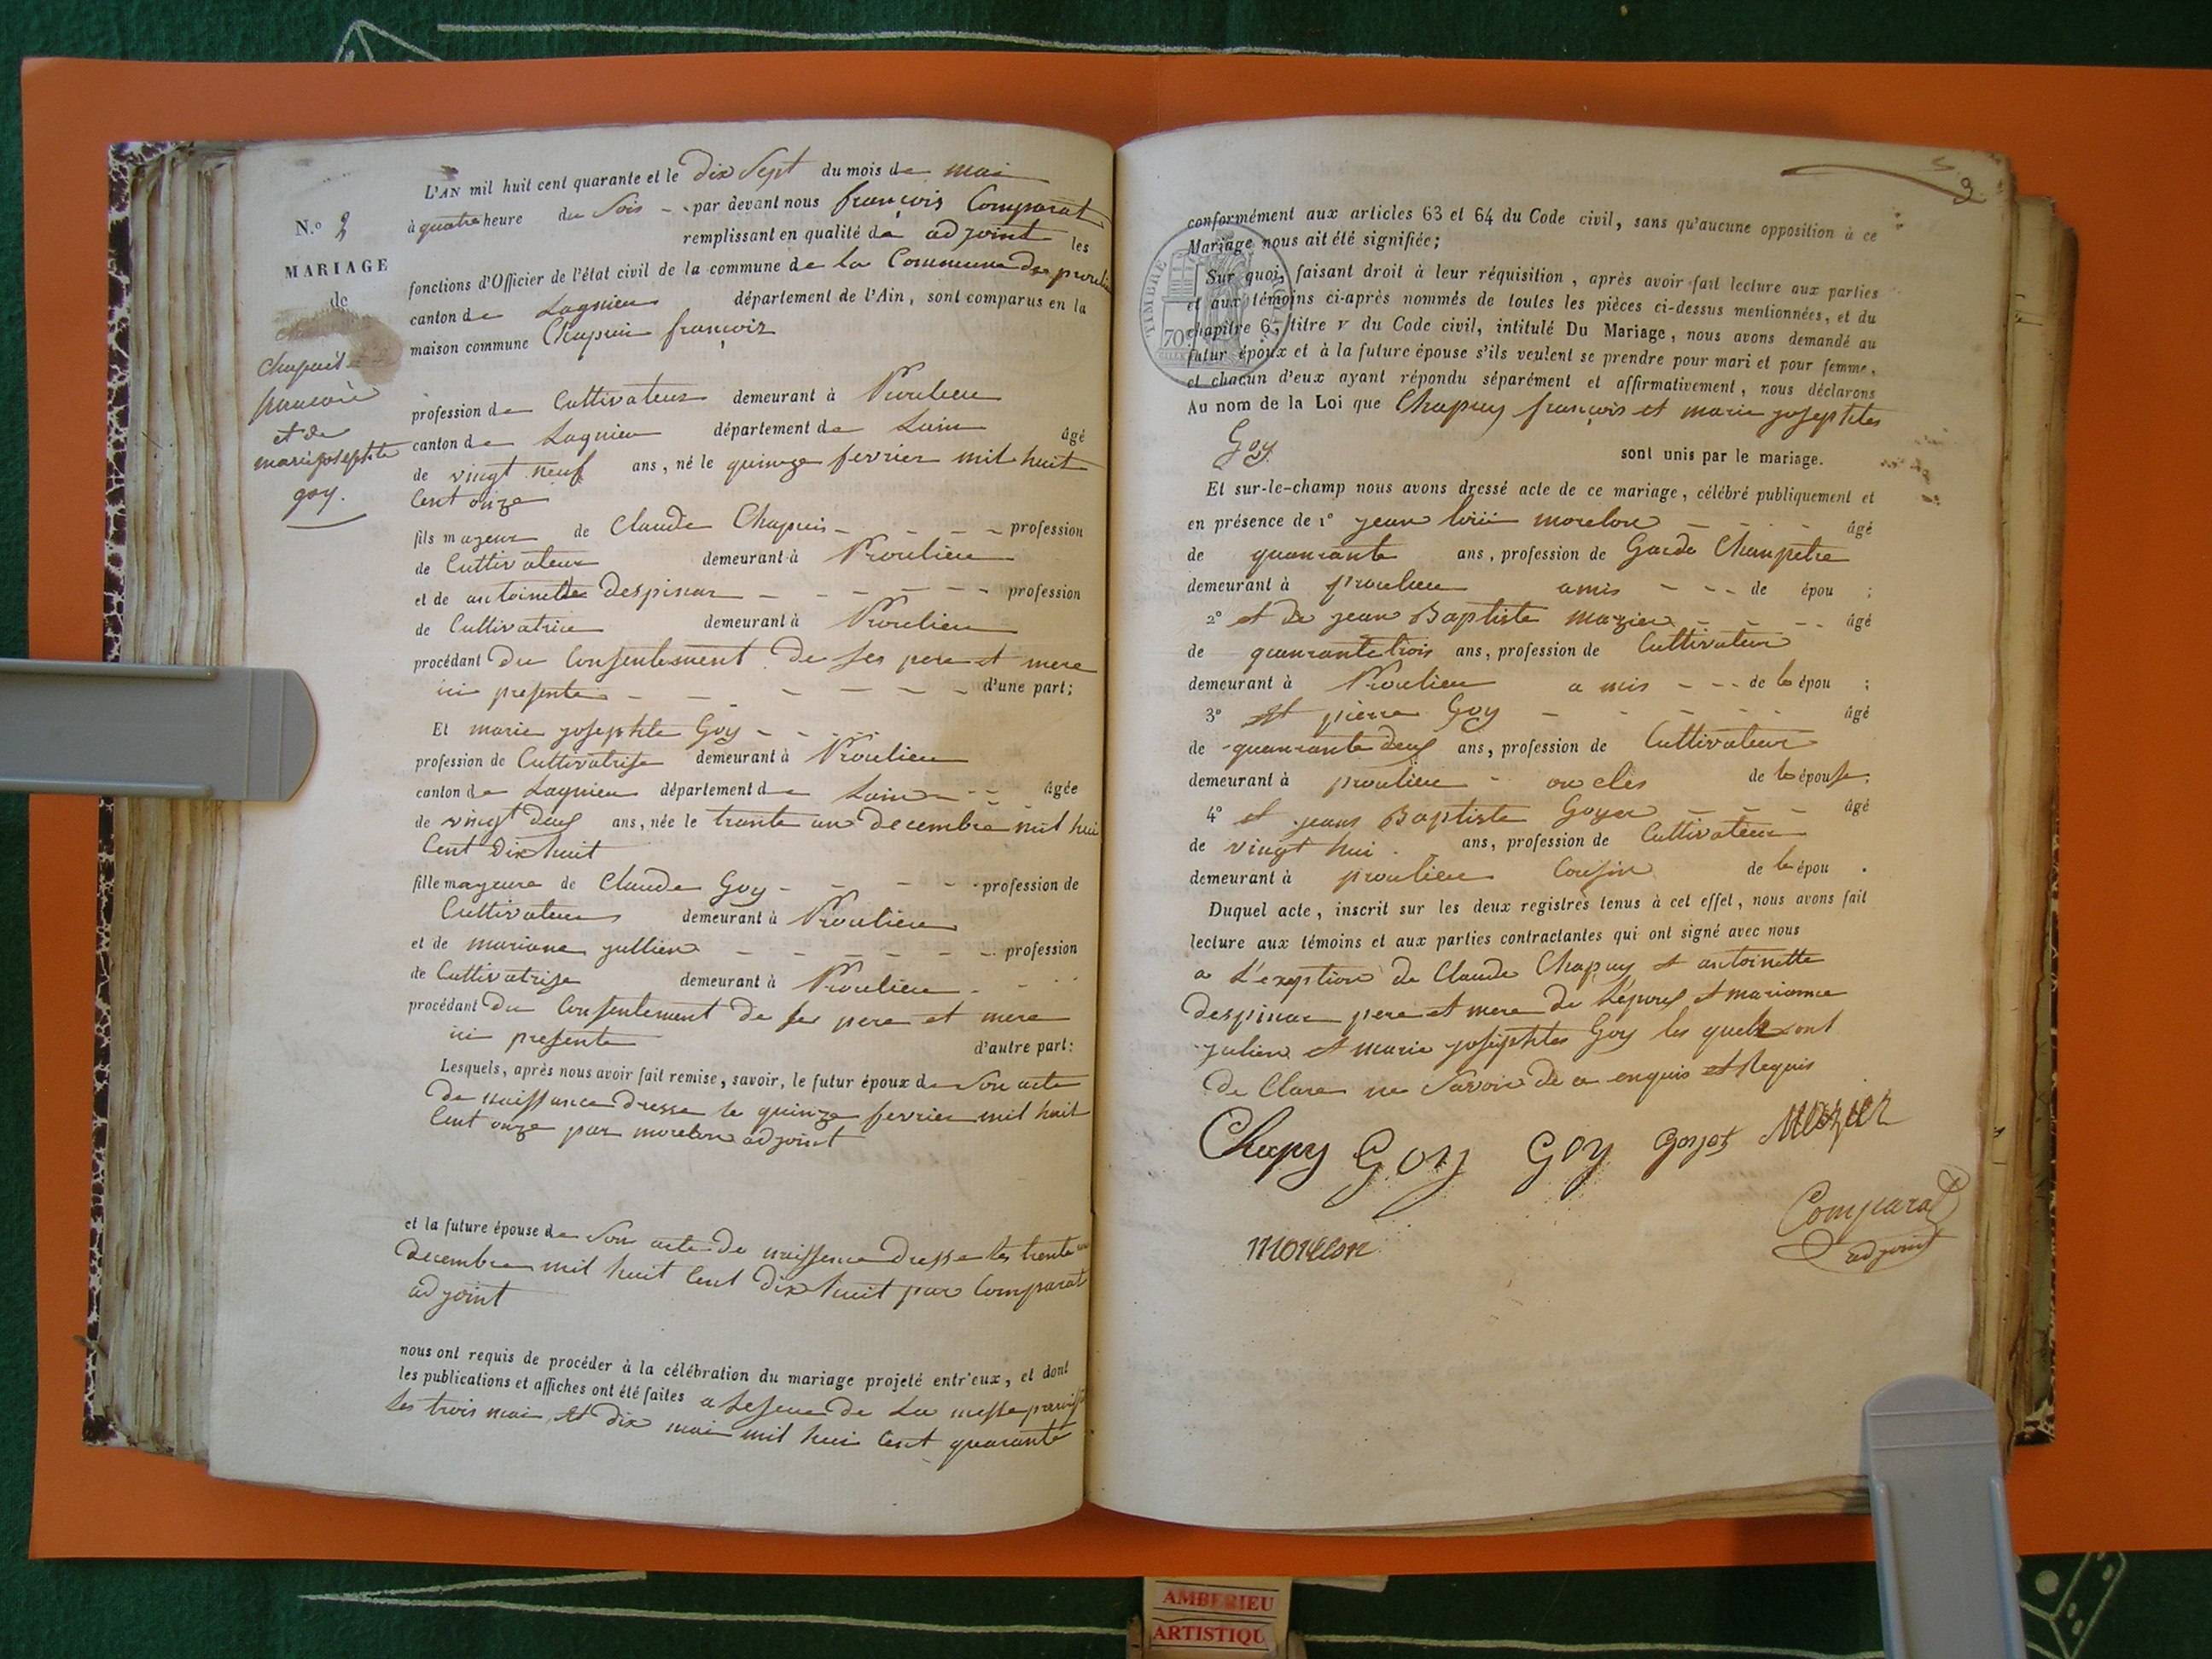 L'AN mil huit cent quarante et le Dix Sept du mois de mai
à quatre heure du Soir par devant nous françois Comparat
remplissant en qualité de adjoint les
fonctions d'Officier de l'état civil de la commune de la Commune de proulieu
canton de Lagnieu département de l'Ain, sont comparus en la
maison commune Chapuis françois
profession de Cultivateur demeurant à Proulieu
canton de Lagnieu département de Lain âgé
de vingt neuf ans, né le quinze fevrier mil huit
Cent onze
fils majeur de Claude Chapuis profession
de Cultivateur demeurant à Proulieu
et de antoinette Despinas profession
de Cultivatrice demeurant à Proulieu
procédant Du Consentement De ses pere et mere
ici presente d'une part;
Et marie josephte Goy
profession de Cultivatrise demeurant à Proulieu
canton de Lagnieu département de Lain âgée
de vingt deux ans, née le trante un decembre mil hui
Cent Dix huit
fille majeure de Claude Goy profession de
Cultivateur demeurant à Proulieu
et de mariane jullien profession
de Cultivatrise demeurant à Proulieu
procédant Du Consentement De ses pere et mere
ici presente d'autre part:
Lesquels, après nous avoir fait remise, savoir, le futur époux de Son acte
De naissance Dresse le quinze fevrier mil huit
Cent onze par morelon adjoint
et la future épouse de Son acte De naissence Dresse les trente un
decembre mil huit Cent Dix huit par Comparat
adjoint
nous ont requis de procéder à la célébration du mariage projeté entr'eux, et dont
les publications et affiches ont été faites a De La messe
les trois mai et dix mai mil hui Cent quarante
N.º 2
MARIAGE
de
Chapuis
françois
et de
marie josephte
goy.
3
conformément aux articles 63 et 64 du Code civil, sans qu'aucune opposition à ce
Mariage nous ait été signifiée;
Sur quoi, faisant droit à leur réquisition, après avoir fait lecture aux parties
et aux témoins ci-après nommés de toutes les pièces ci-dessus mentionnées, et du
chapitre 6, titre V du Code civil, intitulé Du Mariage, nous avons demandé au
futur époux et à la future épouse s'ils veulent se prendre pour mari et pour femme,
et chacun d'eux ayant répondu séparément et affirmativement, nous déclarons
Au nom de la Loi que Chapuy françois et marie josephtes
Goy sont unis par le mariage.
Et sur-le-champ nous avons dressé acte de ce mariage, célébré publiquement et
en présence de 1º jean morelon âgé
de quarante ans, profession de Garde Champetre
demeurant à proulieu amis de épou ;
2º et De jean Baptiste mazier âgé
de quarante trois ans, profession de Cultivateur
demeurant à Proulieu a mis de l épou ;
3º et pierre Goy âgé
de quarante deux ans, profession de Cultivateur
demeurant à proulieu on cles de l épouse;
4º et jean Baptiste Goyet âgé
de vingt hui ans, profession de Cultivateur
demeurant à proulieu Cousin de l épou .
Duquel acte, inscrit sur les deux registres tenus à cet effet, nous avons fait
lecture aux témoins et aux parties contractantes qui ont signé avec nous
a L'exeption de Claude Chapuy et antoinette
despinas pere et mere De L'époux et marianne
julien et marie josephtes Goy les quels ont
De Clare ne Savoir De ce enquis et Requis
Chapy Goy Goy Goyet Mazier
Comparat
adjoint
morelon
TIMBRE
70
AMBERIEU
ARTISTIQU